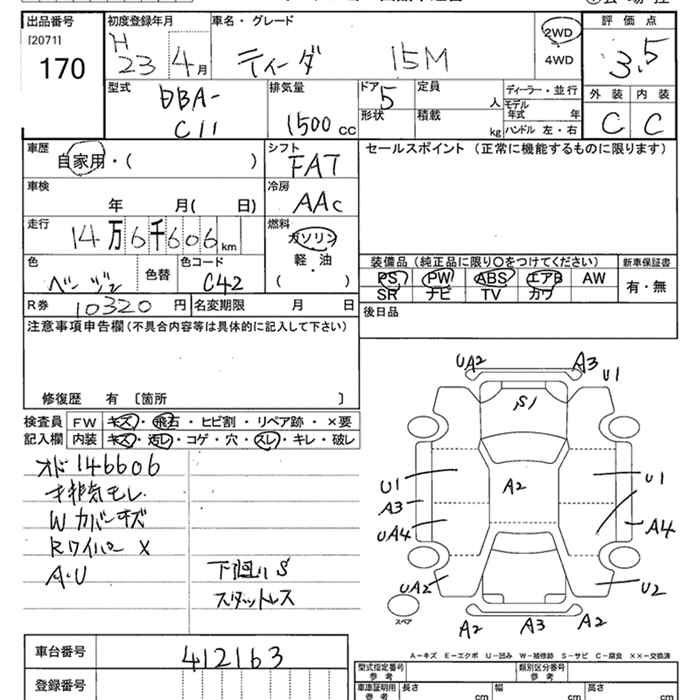 出品番号 初度登録年月 車名・グレード 評価点
[2071]
170
H 23 4月 ティーダ 15M 2WD 4WD 3.5
外装 内装
C C
型式 DBA-C11
排気量 1500cc
ドア 5 定員 人
形状 積載 kg
ディーラー・並行
モデル年式 年
ハンドル 左・右
車歴 自家用・( )
シフト FAT
セールスポイント (正常に機能するものに限ります)
車検 年 月( 日)
冷房 AAC
走行 14万6千606km
燃料 ガソリン
軽・油
( )
色 ベージュ 色替 色コード C42
装備品 (純正品に限り〇をつけてください) 新車保証書
PS PW ABS エアB AW 有・無
SR ナビ TV カワ
R券 10320円 名変期限 月 日
後日品
注意事項申告欄 (不具合内容等は具体的に記入して下さい)
修復歴 有 [箇所 ]
検査員記入欄
FW キズ・飛石・ヒビ割・リペア跡・×要
内装 キズ・汚レ・コゲ・穴・スレ・キレ・破レ
オド146606
排気モレ
Wカバーキズ
Rワイパー X
A・U
下廻り S
スタットレス
UA2 A3 U1
S1
A2
U1 U1
A3 A4
UA4
UA2 U2
スペア
A2 A3 A2
A-キズ E-エクボ U-凹み W-補修跡 S-サビ C-腐食 ××-交換済
車台番号 412163
登録番号
型式指定番号 参考 類別区分番号 参考
車庫証明用 参考 長さ cm 幅 cm 高さ cm